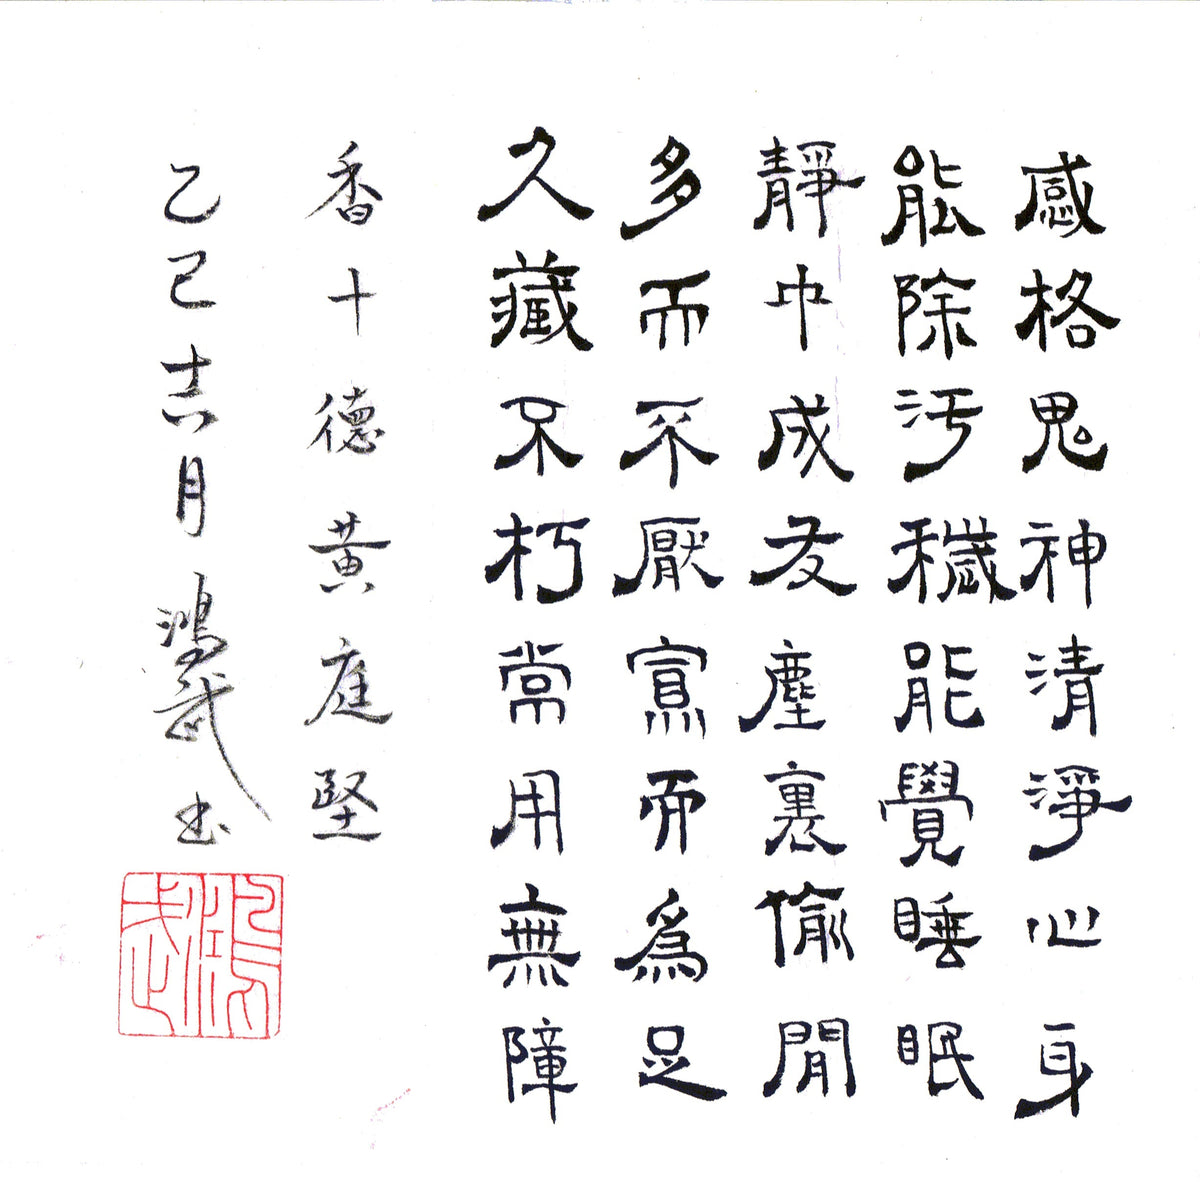 感格鬼神清淨心身
能除汚穢能覺睡眠
靜中成友塵裏偷閒
多而不厭寡而為足
久藏不朽常用無障
香十德黃庭堅
乙巳吉月鴻武書
鴻武